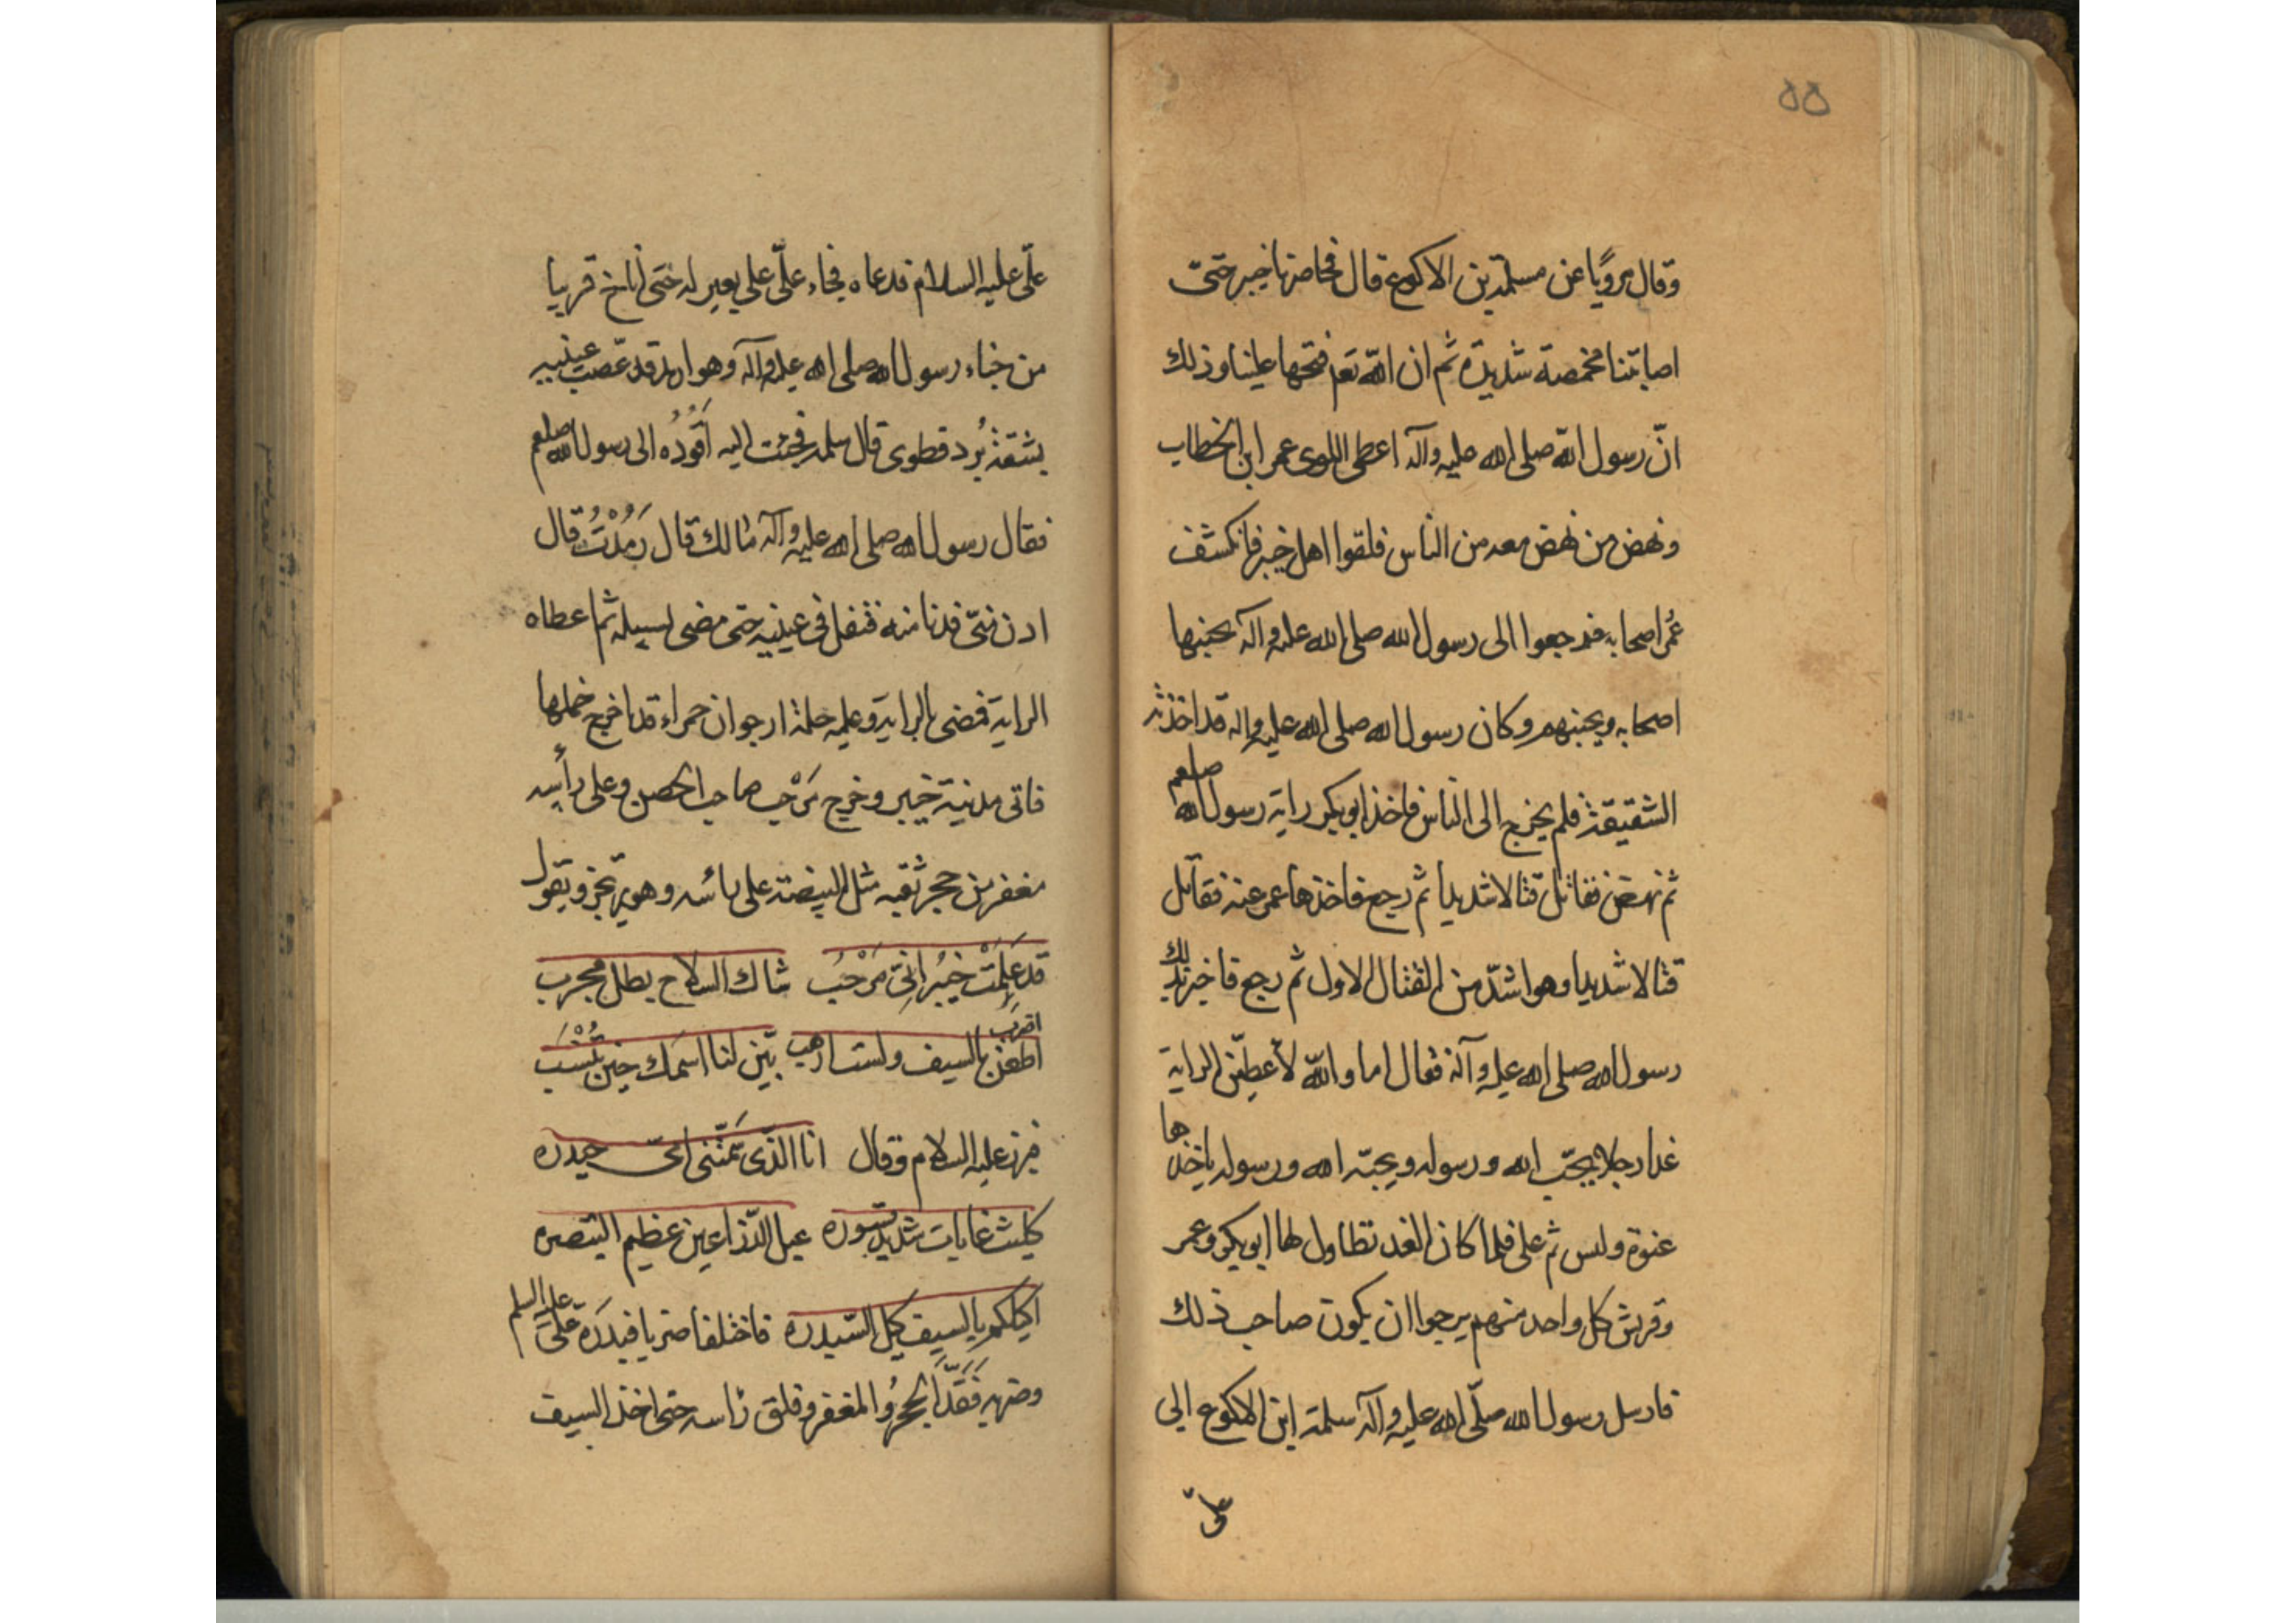 ٥٥
وقال مرويًا عن مسلمة بن الاكوع قال فحاصرنا خيبر حتى
اصابتنا مخمصة شديدة ثم ان الله تعه فتحها علينا وذلك
انّ رسول الله صلى الله عليه وآله اعطى اللوى عمر ابن الخطاب
ونهض من نهض معه من الناس فلقوا اهل خيبر فانكشف
عُمر اصحابه فرجعوا الى رسول الله صلى الله عليه وآله يجبنها
اصحابه ويجبنهم وكان رسول الله صلى الله عليه واله قد اخذته
الشقيقة فلم يخرج الى الناس فاخذ ابو بكر راية رسول الله صلعم
ثم نهض فقاتل قتالا شديدا ثم رجع فاخذها عمر عنه فقاتل
قتالا شديدا وهو اشدّ من القتال الاول ثم رجع فاخبر بذلك
رسول الله صلى الله عليه وآله فقال اما والله لأعطينّ الراية
غدا رجلا يحبّ الله ورسوله ويحبّه الله ورسوله ياخذها
عنوة وليس ثم على فلما كان الغد تطاول لها ابو بكر وعمر
وقريش كل واحد منهم يرجوا ان يكون صاحب ذلك
فارسل رسول الله صلّى الله عليه وآله سلمة ابن الاكوع الى
علىّ
علىّ عليه السلام فدعاه فجاء علىّ على بعير له حتى أناخ قريبا
من خباء رسول الله صلى الله عليه وآله وهو ارمد قد عصب عينيه
بشقة بُرد قطوى قال سلمه فجئت اليه اَقُودُه الى رسول الله صلعم
فقال رسول الله صلى الله عليه وآله مالك قال رَمُدْتُ قال
ادن منّى فدنا منه فتفل فى عينيه حتى مضى لسبيله ثم اعطاه
الراية فمضى بالراية وعليه حلة ارجوان حمراء قد اخرج خملها
فاتى مدينة خيبر وخرج مَرْحب صاحب الحصن وعلى رأسه
مغفر من حجر ثقبه مثل البيضة على رائسه وهو يرتجز ويقول
قد عَلِمَتْ خيبُر انّى مَرْحَبُ شاك السلاح بطل مجرب
اطعن بالسيف ولست ارهب بيّن لنا اسمك حين تُنْسَب
اضرب
فبرز عليه السلام وقال انا الذّى سَمّتنى امّى حيدره
كليث غابات شديد قسوره عبل الذّراعين عظيم القصره
اكيلكم بالسيف كيل السّندره فاختلفا ضربا فبدَرَهُ علىّ عليه السلم
وضربه فَقَدَّ الحجرُ والمغفر وفلق رأسه حتى اخذ السيف